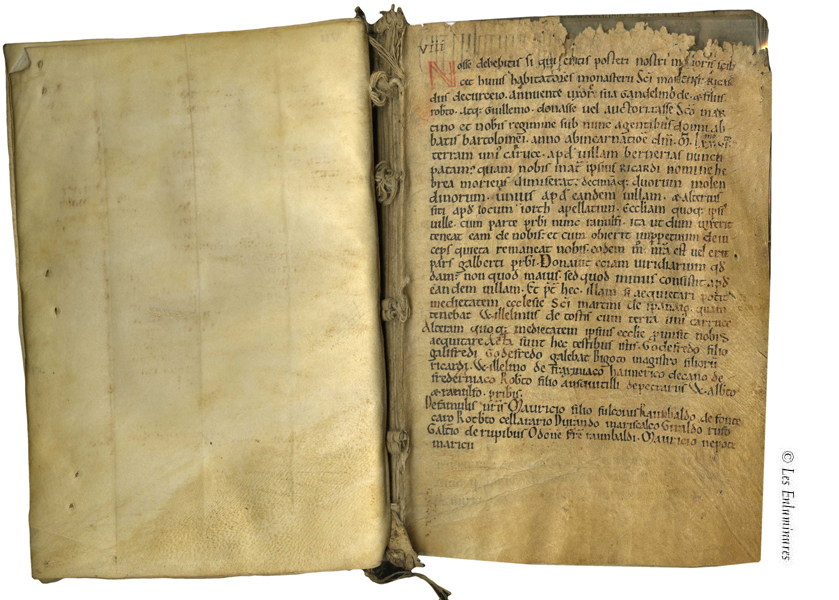 viii
Nosse debebitis si qui estis posteri nostri maioris
cet huius habitatores monasterii Sci martini Ricar
dus decurceio. annuente uxore sua Gandelmode. & filiis
rotbto. atq; Guillelmo. donasse vel auctorizasse Sco mar
tino et nobis regimine sub nunc agentibus domni ab
batis bartolomei. anno abincarnatione dni. M.
terram unius carruce. apd uillam bernerias nuncu
patam; quam nobis mat ipsius Ricardi nomine he
brea moriens dimiserat; decimaq; duorum molen
dinorum. unius apd eandem uillam. & alterius
siti apd locum iorth apellatum. Eccliam quoq; ipsi
uille. cum parte prbi nunc ranulfi. ita ut dum uixerit
teneat eam de nobis; et cum obierit inppetuum dein
ceps quieta remaneat nobis. eodem m a est vel erit
pars galberti prbi. Donauit eciam uiridiarium qd
dam; non quod maius. sed quod minus consistit apd
eandem uillam. Et pt hec. illam si aequietari potit
medietatem ecclesie Sci martini de quam
tenebat Willelmus de tostis cum terra uni carruce
Alteram quoq; medietatem ipsius ecclie nobis
aequitare. Acta sunt hec testibus istis. Godefredo filio
galifredi Godefredo galebat Bigoto magistro filiorum
ricardi. Willelmo de hannerico decano de
Rotbto filio depetrariis W. albto
& ranulfo. pribis.
Defamulis nris Mauricio filio fulcoius Rambaldo de fonte
caro Rotbto cellarario Durando mariscalco Giraldo rufo
Galtio de rupibus Odone fre raimbaldi. Mauricio nepote
maricii
© Les Enluminures